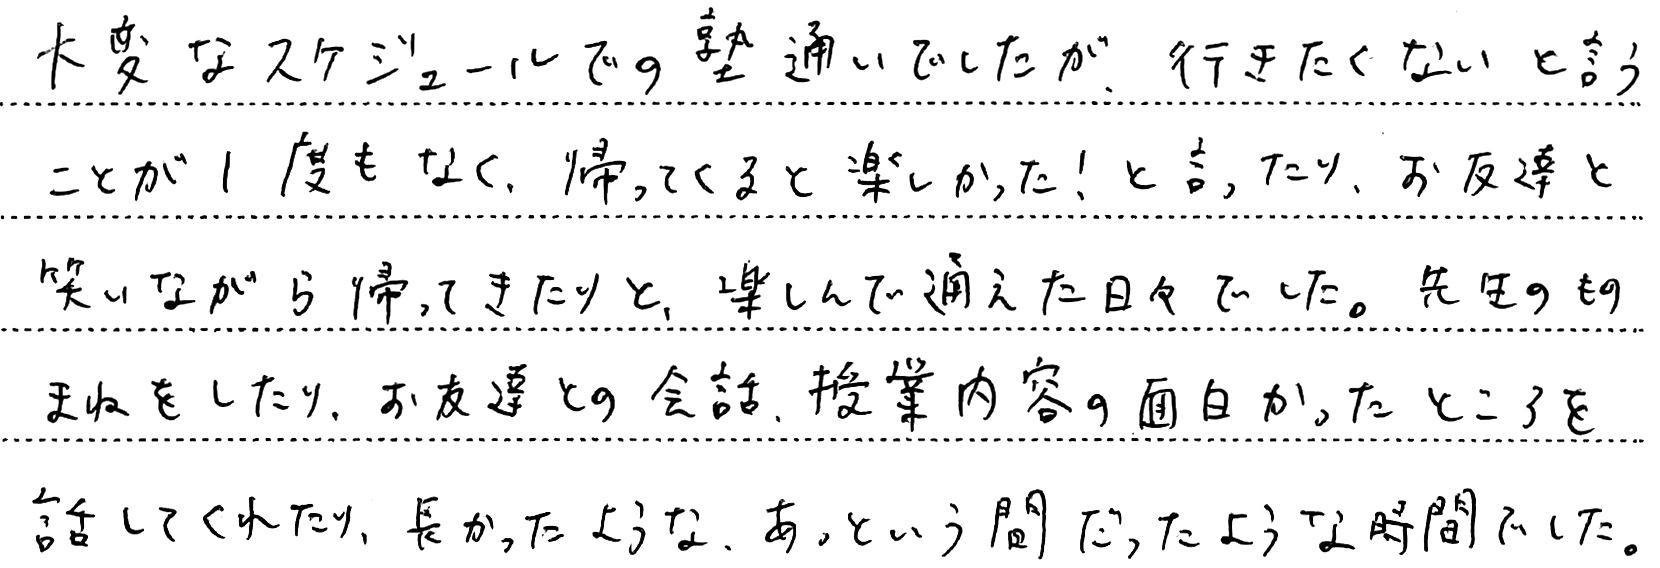 大変なスケジュールでの塾通いでしたが、行きたくないと言う
ことが1度もなく、帰ってくると楽しかった！と言ったり、お友達と
笑いながら帰ってきたりと、楽しんで通えた日々でした。先生のもの
まねをしたり、お友達との会話、授業内容の面白かったところを
話してくれたり、長かったような、あっという間だったような時間でした。